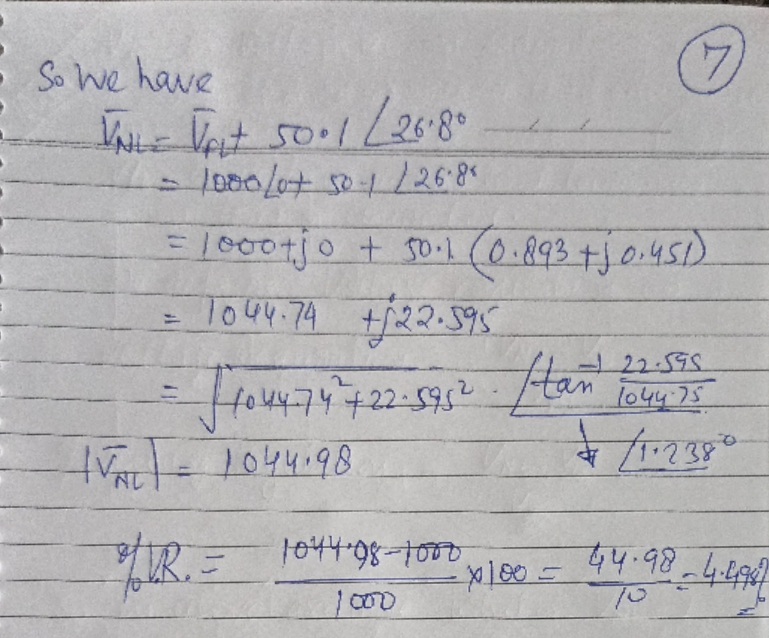 7
So we have
V̅NL = V̅FL + 50.1 ∠26.8°
= 1000∠0 + 50.1 ∠26.8°
= 1000 + j0 + 50.1 (0.893 + j0.451)
= 1044.74 + j22.595
= √(1044.74² + 22.595²) . ∠tan⁻¹ 22.595/1044.75
|V̅NL| = 1044.98 ↓ ∠1.238°
% V.R. = (1044.98 - 1000)/1000 × 100 = 44.98/10 = 4.498%